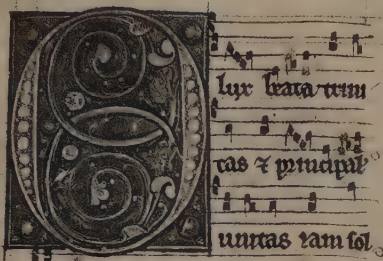 O
lux beata trini
tas ⁊ principal
unitas iam sol